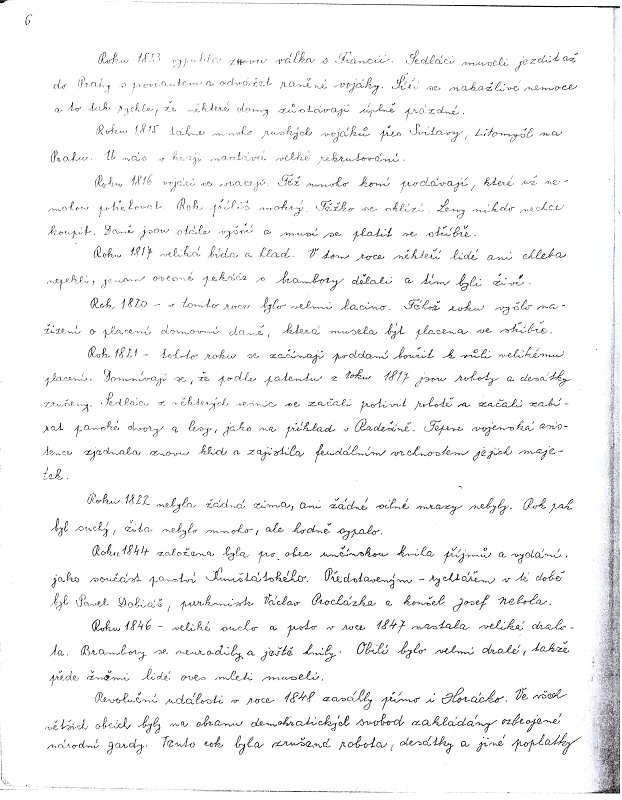 6
Roku 1813 vypukla znovu válka s Francií. Sedláci museli jezdit až
do Prahy s proviantem a odvážet raněné vojáky. Šíří se nakažlivé nemoce
a to tak rychle, že některé domy zůstávají úplně prázdné.
Roku 1815 táhne mnoho ruských vojáků přes Svitavy, Litomyšl na
Prahu. U nás v kraji nastává velké rekrutování.
Roku 1816 vojáci se vracejí. Též mnoho koní prodávají, které už ne-
mohou potřebovat. Rok příliš mokrý. Těžko se sklízí. Leny nikdo nechce
koupit. Daně jsou stále vyšší a musí se platit ve stříbře.
Roku 1817 veliká bída a hlad. V tom roce někteří lidé ani chleba
nepekli, jenom ovesné pekáče s brambory dělali a tím byli živi.
Rok 1820 - v tomto roce bylo velmi lacino. Téhož roku vyšlo na-
řízení o placení domovní daně, která musela být placena ve stříbře.
Rok 1821 - tohoto roku se začínají poddaní bouřit k vůli velikému
placení. Domnívají se, že podle patentu z roku 1817 jsou roboty a desátky
zrušeny. Sedláci z některých vesnic se začali protivit robotě a začali zabí-
rat panské dvory a lesy, jako na příklad v Radešíně. Teprve vojenská asis-
tence zjednala znovu klid a zajistila feudálním vrchnostem jejich maje-
tek.
Roku 1822 nebyla žádná zima, ani žádné silné mrazy nebyly. Rok pak
byl suchý, žita nebylo mnoho, ale hodně sypalo.
Roku 1844 založena byla pro obec unčínskou kniha příjmů a vydání,
jako součást panství Kunštátského. Představeným - rychtářem v té době
byl Pavel Dobiáš, purkmistr Václav Procházka a konšel Josef Nebola.
Roku 1846 - veliké sucho a proto v roce 1847 nastala veliká draho-
ta. Brambory se neurodily a ještě hnily. Obilí bylo velmi drahé, takže
přede žněmi lidé oves mleti museli.
Revoluční události v roce 1848 zasáhly přímo i Horácko. Ve všech
větších obcích byly na obranu demokratických svobod zakládány ozbrojené
národní gardy. Tento rok byla zrušena robota, desátky a jiné poplatky